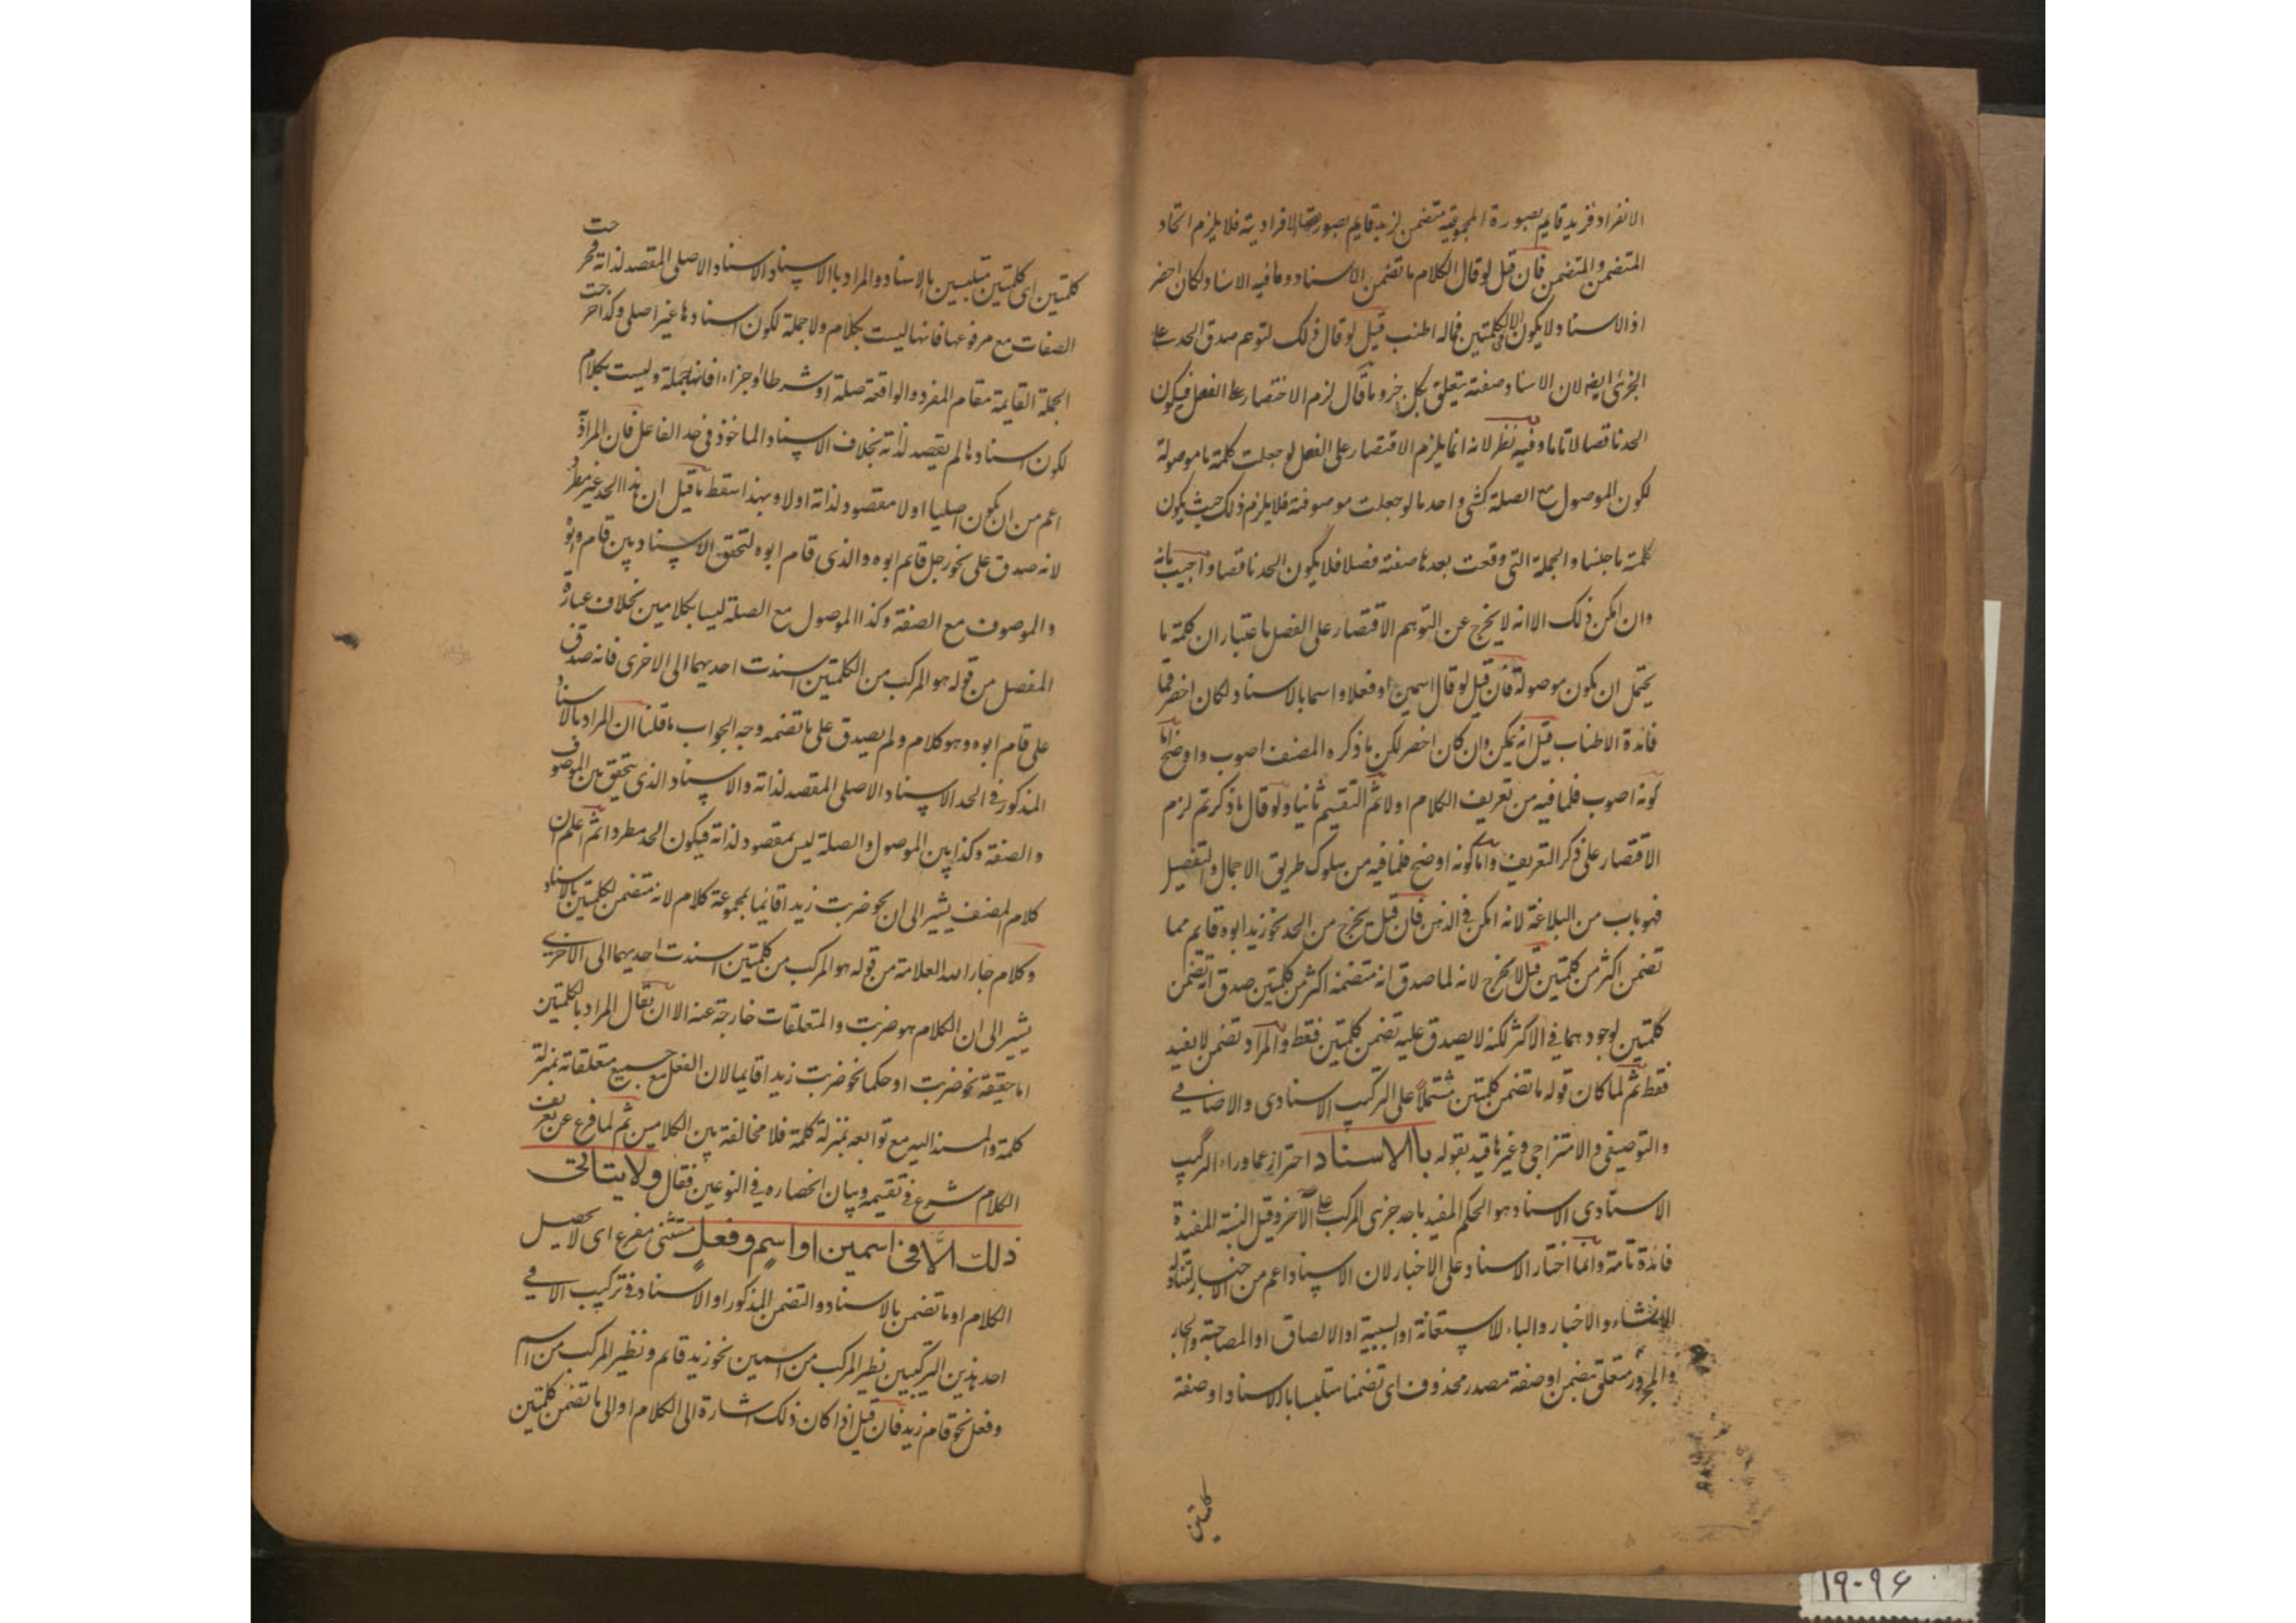 الانفراد فزيد قايم بصورة المجموعية متضمن لزيد قايم بصورته الافرادية فلا يلزم اتحاد
المتضمن والمتضمن فان قيل لو قال الكلام ما تضمن الاسناد وما فيه الاسناد لكان اخصر
اذ الاسناد لا يكون الا في الكلمتين فما له اطنب قيل لو قال ذلك لتوهم صدق الحد على
الجزئ ايضا لان الاسناد صفة يتعلق بكل جزو ما قال لزم الاختصار على الفصل فيكون
الحد ناقصا لا تاما وفيه نظر لانه انما يلزم الاقتصار على الفصل لو جعلت كلمة ما موصولة
لكون الموصول مع الصلة كشئ واحد ما لو جعلت موصوفة فلا يلزم ذلك حيث يكون
كلمة ما جنسا والجملة التى وقعت بعدها صفة فصلا فلا يكون الحد ناقصا واجيب بانه
وان امكن ذلك الا انه لا يخرج عن التوهم الاقتصار على الفصل باعتبار ان كلمة ما
يحتمل ان يكون موصولة فان قيل لو قال اسمين او فعلا واسما بالاسناد لكان اخصر فما
فائدة الاطناب قيل انه يمكن وان كان اخصر لكن ما ذكره المصنف اصوب واوضح اما
كونه اصوب فلما فيه من تعريف الكلام اولا ثم التقسيم ثانيا ولو قال ما ذكرتم لزم
الاقتصار على ذكر التعريف واما كونه اوضح فلما فيه من سلوك طريق الاجمال والتفصيل
فهو باب من البلاغة لانه امكن فى الذهن فان قيل يخرج من الحد نحو زيد ابوه قايم مما
تضمن اكثر من كلمتين قيل لا يخرج لانه لما صدق انه متضمنه اكثر من كلمتين صدق انه تضمن
كلمتين لوجودهما فى الاكثر لكنه لا يصدق عليه تضمن كلمتين فقط والمراد تضمن لا بقيد
فقط ثم لما كان قوله ما تضمن كلمتين مشتملا على التركيب الاسنادى والاضافى
والتوصيفى والامتزاجى وغيرها قيد بقوله بالاسناد احترازعما وراء التركيب
الاسنادى الاسناد وهو الحكم المفيد باحد جزئى المركب على الآخر وقيل النسبة المفيدة
فائدة تامة وانما اختار الاسناد على الاخبار لان الاسناد اعم من الاخبار لتناوله
الانشاء والاخبار والباء للاستعانة او السببية او الالصاق او المصاحبة والجار
والمجرور متعلق بتضمن او صفة مصدر محذوف اى تضمنا متلبسا بالاسناد او صفة
كلمتين
كلمتين اى كلمتين متلبسين بالاسناد والمراد بالاسناد الاسناد الاصلى المقصد لذاته فخرجت
الصفات مع مرفوعها فانها ليست بكلام ولا جملة لكون اسنادها غير اصلى وكذا خرجت
الجملة القايمة مقام المفرد والواقعة صلة او شرطا او جزاء فانها جملة وليست بكلام
لكون اسنادها لم يقصد لذاته بخلاف الاسناد الماخوذ فى حد الفاعل فان المراد
اعم من ان يكون اصليا اولا مقصود لذاته اولا وبهذا سقط ما قيل ان هذا الحد غير مطرد
لانه صدق على نحو رجل قايم ابوه والذى قام ابوه لتحقق الاسناد بين قام وابوه
والموصوف مع الصفة وكذا الموصول مع الصلة ليسا بكلامين بخلاف عبارة
المفصل من قوله هو المركب من الكلمتين اسندت احديهما الى الاخرى فانه صدق
على قام ابوه وهو كلام ولم يصدق على ما تضمنه وجه الجواب ما قلنا ان المراد بالاسناد
المذكور فى الحد الاسناد الاصلى المقصد لذاته والاسناد الذى يتحقق بين الموصوف
والصفة وكذا بين الموصول والصلة ليس بمقصود لذاته فيكون الحد مطردا ثم اعلم ان
كلام المصنف يشير الى ان نحو ضربت زيدا قايما بمجموعة كلام لانه متضمن لكلمتين بالاسناد
وكلام جار الله العلامة من قوله هو المركب من كلمتين اسندت احديهما الى الاخرى
يشير الى ان الكلام هو ضربت والمتعلقات خارجة عنه الا ان يقال المراد بالكلمتين
اما حقيقة نحو ضربت او حكما نحو ضربت زيدا قايما لان الفعل مع جميع متعلقاته بمنزلة
كلمة والمسند اليه مع توابعه بمنزلة كلمة فلا مخالفة بين الكلامين ثم لما فرغ عن تعريف
الكلام شرع فى تقسيمه وبيان انحصاره فى النوعين فقال ولا يتاتى
ذلك الا فى اسمين او اسم وفعل مستثنى مفرغ اى لا يحصل
الكلام او ما تضمن بالاسناد والتضمن المذكور او الاسناد فى تركيب الا فى
احد هذين التركيبين نظير المركب من اسمين نحو زيد قائم ونظير المركب من اسم
وفعل نحو قام زيد فان قيل اذا كان ذلك اشارة الى الكلام او الى ما تضمن كلمتين
١٩-٩٤